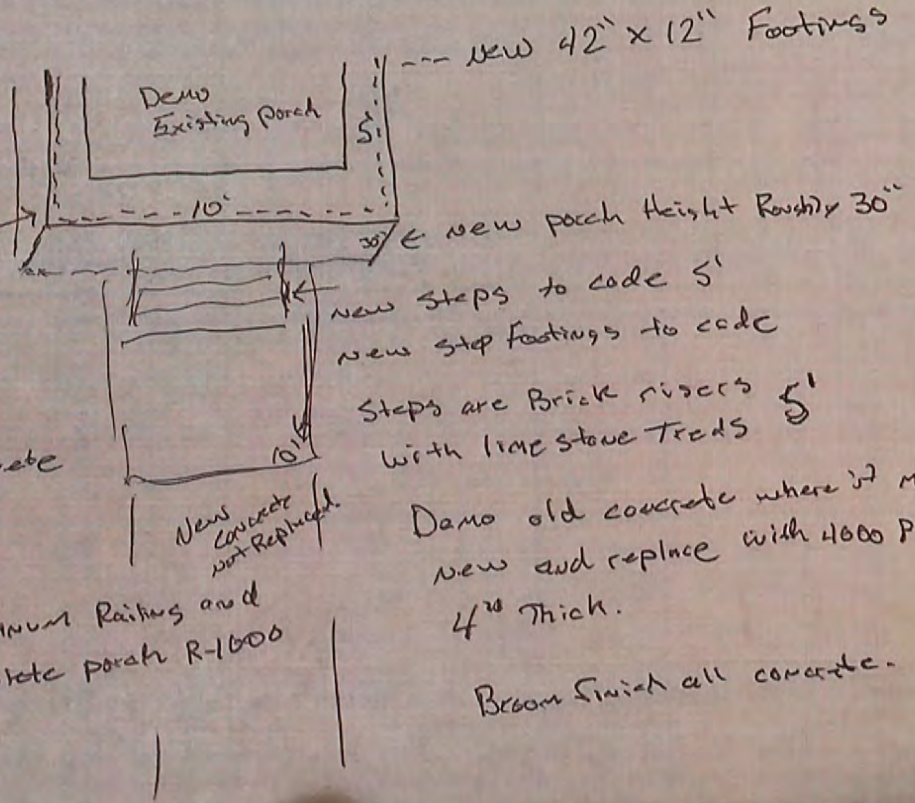 --- New 42" x 12" Footings
Demo
Existing porch
5'
10'
30" ← New porch Height Roughly 30"
New Steps to code 5'
New Step Footings to code
Steps are Brick risers 5'
with limestone Treds
10'
New
Concrete
Not Replaced.
Demo old concrete where it m
New and replace with 4000 P
4" Thick.
Railing and
porch R-1000
Broom Finish all concrete.